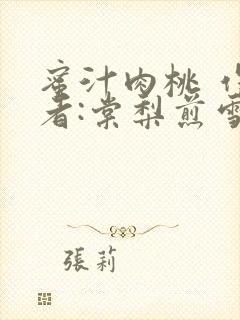 蜜汁肉桃
者:棠梨煎雪
張莉